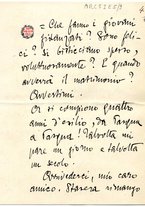 = Che fanno i giovani
fidanzati? Sono feli-
ci? Si bisticciano spero,
voluttuosamente? E quando
avverrà il matrimonio?
Avvertimi.
Ora si compiono quattro
anni d'esilio, da Pasqua
a Pasqua! Talvolta mi
pare un giorno e talvolta
un secolo.
Arrivederci, mio caro
amico. Stasera rimango